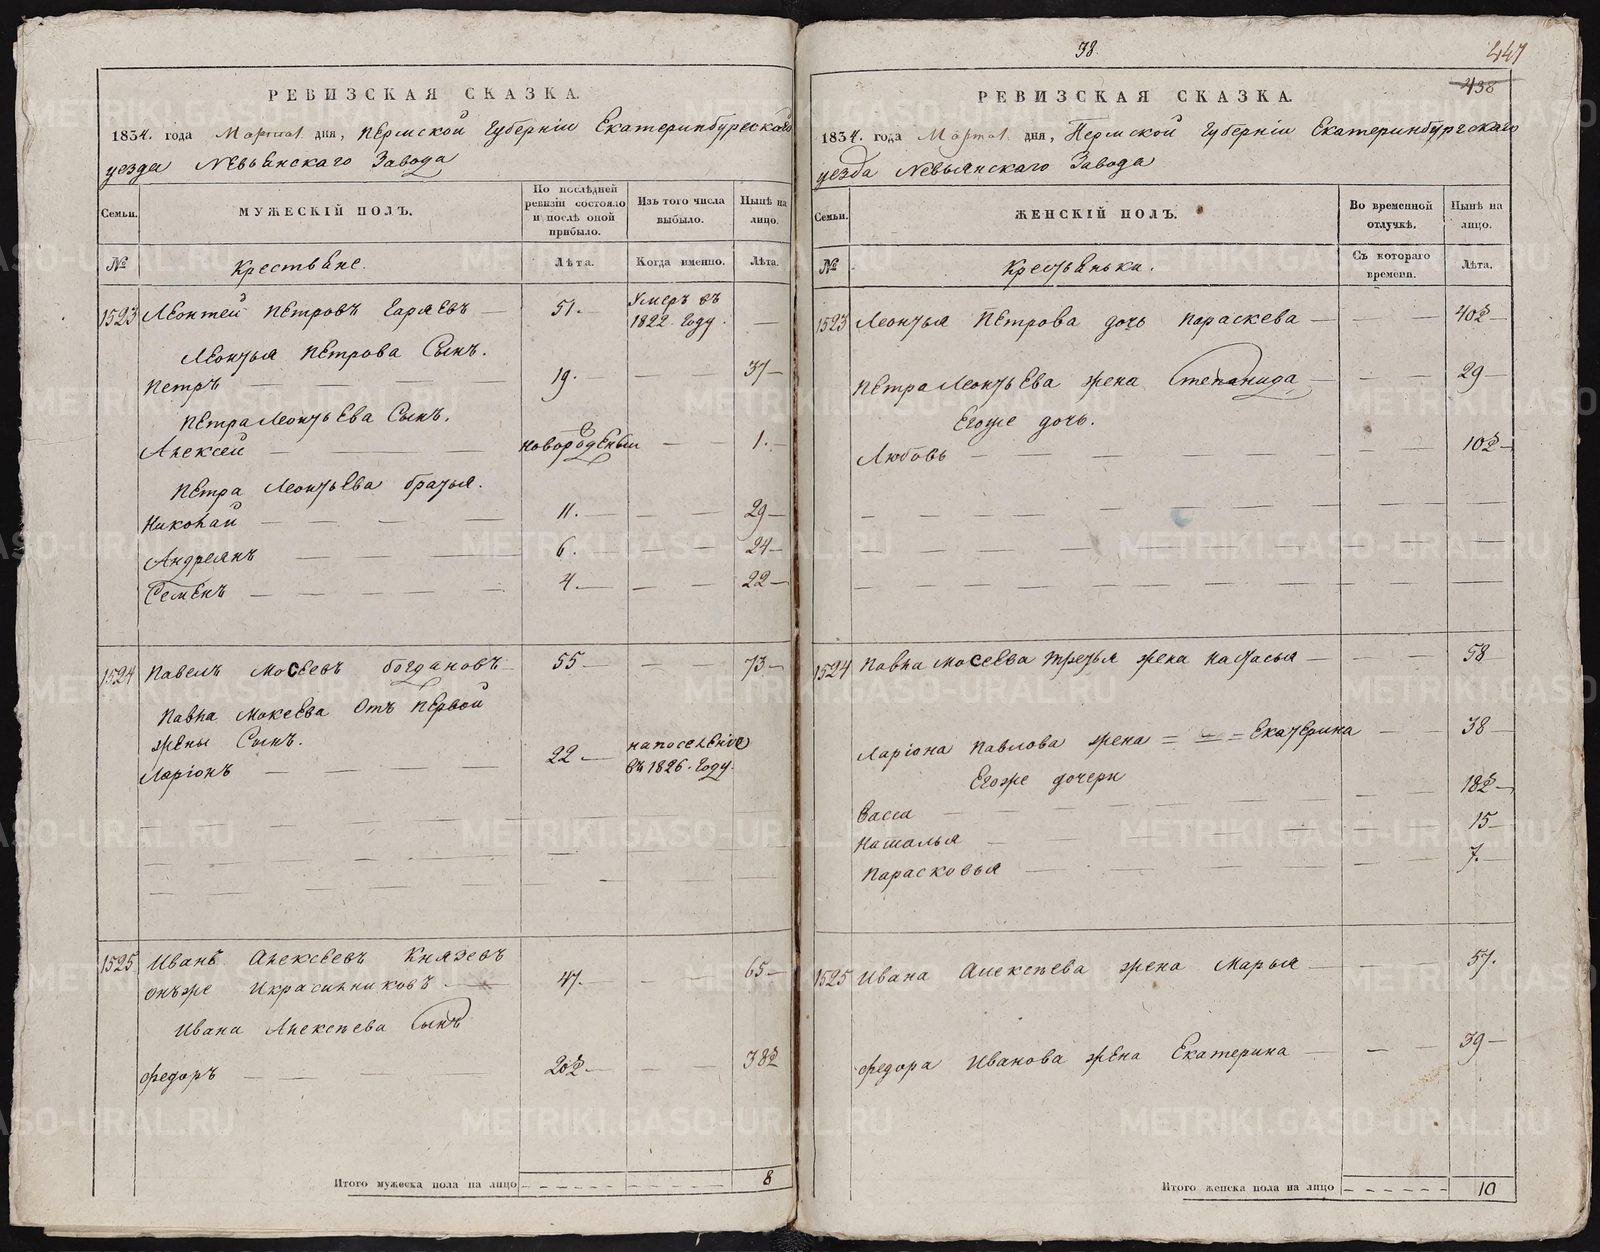 РЕВИЗСКАЯ СКАЗКА.
1834. года Марта дня, Пермской Губернiи Екатеринбургскаго
уезда Невьянскаго Завода
Семьи.
МУЖЕСКIЙ ПОЛЪ.
По послѣдней ревизiи состояло и послѣ оной прибыло.
Изъ того числа выбыло.
Нынѣ на лицо.
№
Крестьяне.
Лѣта.
Когда именно.
Лѣта.
1523 Леонтей Петровъ Гаряевъ — 51. — Умеръ въ 1822. Году. —
Леонтья Петрова Сынъ.
Петръ — 19. — 37 —
Петра Леонтьева Сынъ.
Алексей — новорожденый — 1. —
Петра Леонтьева братья.
Николай — 11. — 29 —
Андреянъ — 6. — 24 —
Семенъ — 4. — 22 —
1524 Павелъ Мосеевъ богдановъ — 55 — 73 —
Павла Мокеева Отъ первой
жены Сынъ.
Ларiонъ — 22 — на поселенiе въ 1826. Году.
1525 Иванъ Алексеевъ Князевъ
онъже Икрасильниковъ — 47. — 65 —
Ивана Алексѣева Сынъ
Федоръ — 20½ — 38½
Итого мужеска пола на лицо 8
38.
447
438
РЕВИЗСКАЯ СКАЗКА.
1834. года Марта дня, Пермской Губернiи Екатеринбургскаго
уезда Невьянскаго Завода
Семьи.
ЖЕНСКIЙ ПОЛЪ.
Во временной отлучкѣ.
Нынѣ на лицо.
№
Крестьянька.
Съ котораго времени.
Лѣта.
1523 Леонтья Петрова дочь Параскева — 40½ —
Петра Леонтьева жена Степанида — 29 —
Егоже дочь.
Любовь — 10½ —
1524 Павла Мосеева третья жена Настасья — 58
Ларiона Павлова жена — Екатерина — 38 —
Егоже дочери
Васса — 18½ —
Наталья — 15 —
Парасковья — 7. —
1525 Ивана Алексѣева жена Марья — 57.
Федора Иванова жена Екатерина — 39 —
Итого женска пола на лицо 10
METRIKI.GASO-URAL.RU